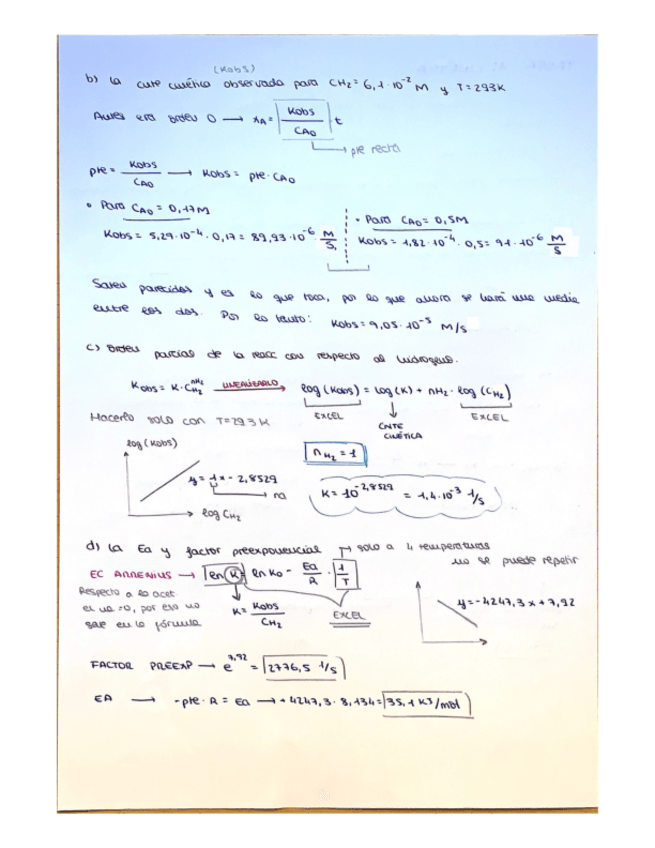 (Kobs)
b) La cnte cinética observada para CH₂ = 6,1·10⁻² M y T = 293K
Antes era orden 0 → xA = Kobs/CA0 t
pte recta
pte = Kobs/CA0 → Kobs = pte·CA0
• Para CA0 = 0,17M
Kobs = 5,29·10⁻⁴·0,17 = 89,93·10⁻⁶ M/S
• Para CA0 = 0,5M
Kobs = 1,82·10⁻⁴·0,5 = 91·10⁻⁶ M/S
Salen parecidos y es lo que toca, por lo que ahora se hará una media
entre los dos. Por lo tanto: Kobs = 9,05·10⁻⁵ M/s
c) Orden parcial de la reacc con respecto al hidrógeno.
Kobs = K·C_H₂^nH₂ LINEALIZARLO → log(Kobs) = log(K) + nH₂·log(CH₂)
EXCEL
CNTE CINÉTICA
EXCEL
Hacerlo solo con T=293K
log(Kobs)
nH₂ = 1
y = 1x - 2,8529
K = 10^-2,8529 = 1,4·10⁻³ 1/s
log CH₂
d) La Ea y factor preexponencial → solo a 4 temperaturas
no se puede repetir
EC ARRENIUS → ln K = ln K0 - Ea/R · 1/T
Respecto a lo acet
es na=0, por eso no
sale en la fórmula
K = Kobs/CH₂
EXCEL
y = -4247,3x + 7,92
FACTOR PREEXP → e^7,92 = 2776,5 1/s
EA → -pte·R = Ea → +4247,3·8,134 = 35,1 KJ/mol